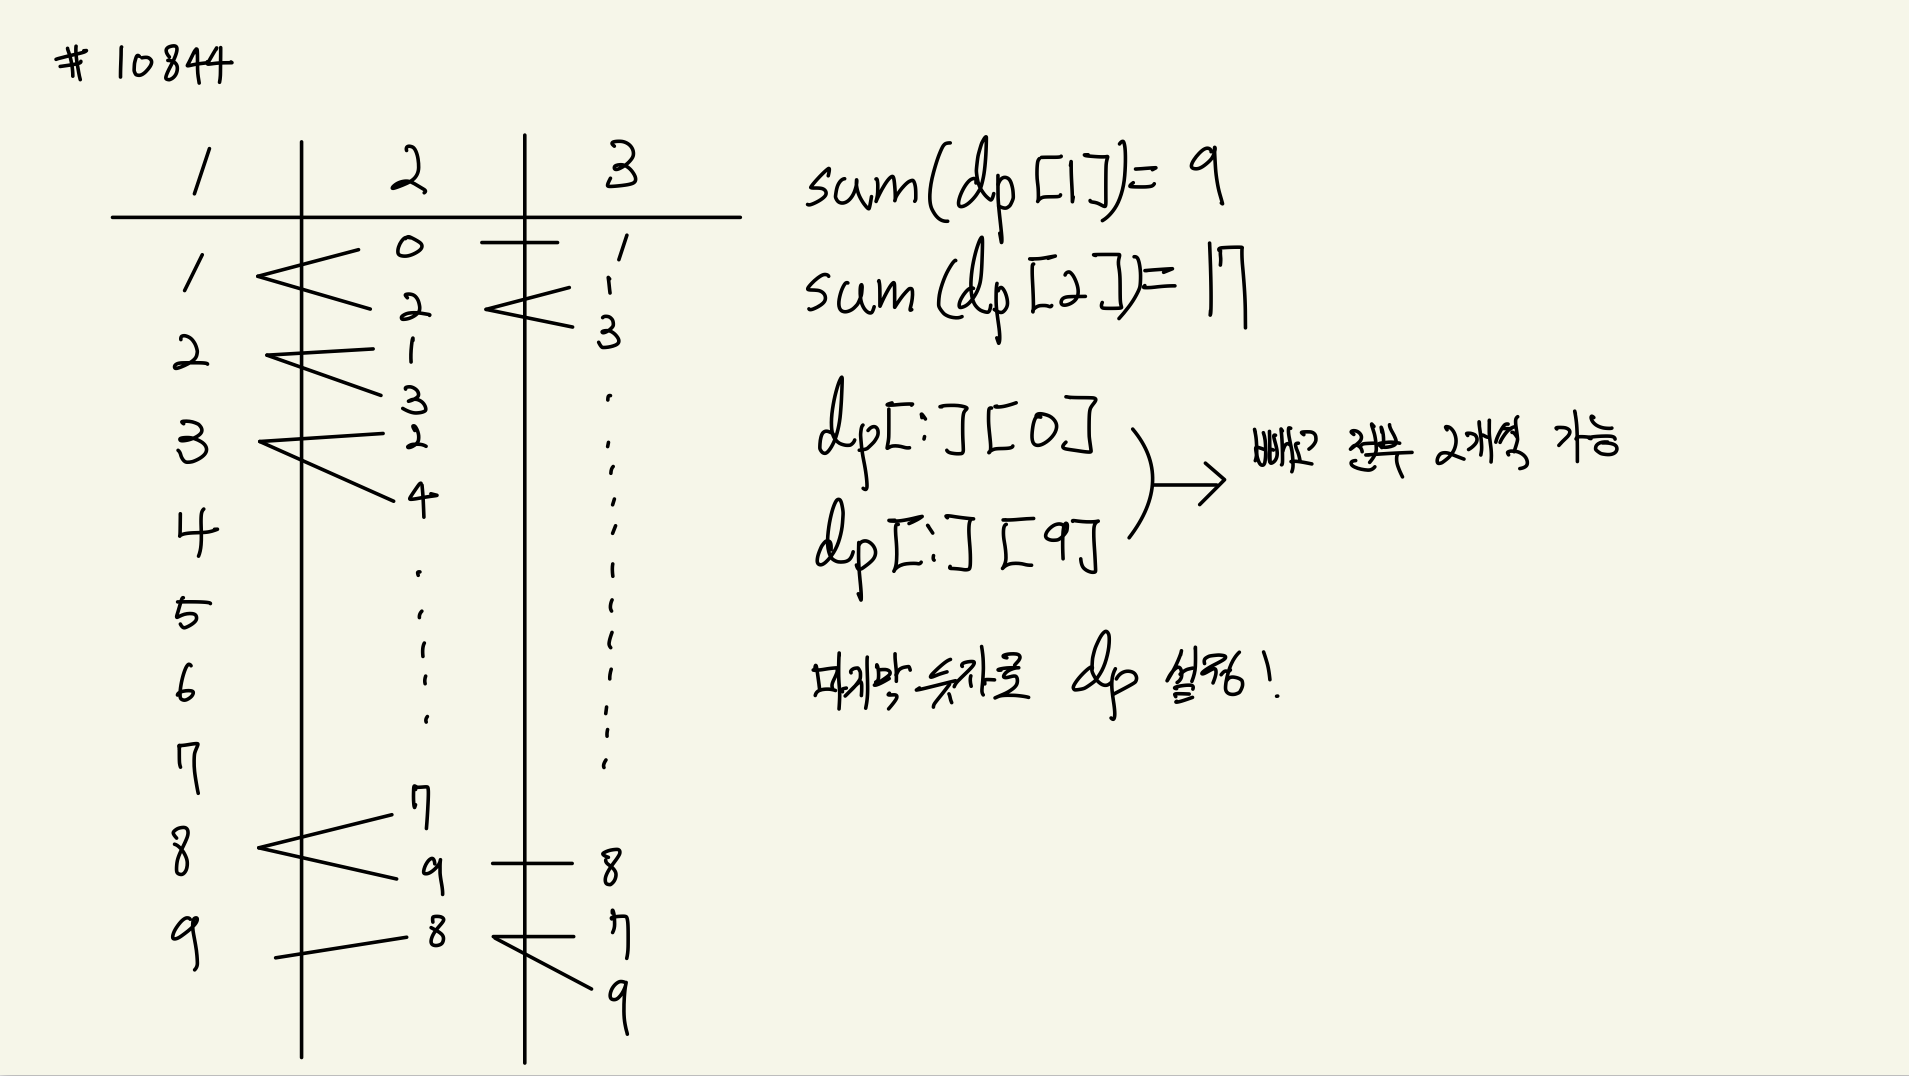 # 10844
1 2 3
1 0 1
2 1
3
2 1
3
3 2
4
4
5
6
7
7
8
9 8
9 8 7
9
sum(dp[1])= 9
sum(dp[2])= 17
dp[:][0]
dp[:][9]
빼고 전부 2개씩 가능
마지막 숫자로 dp 설정!